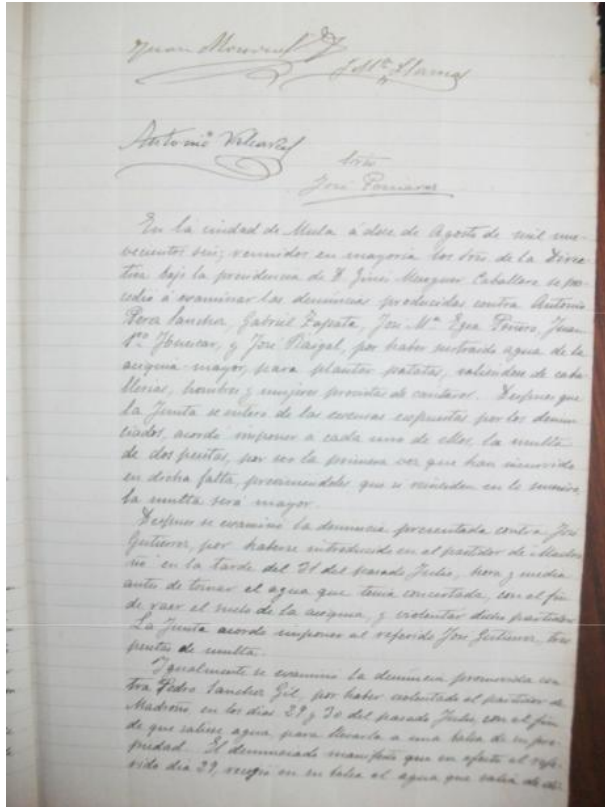 Juan
J. Mª Llamas
Antonio Valcarcel
Srio
José
En la ciudad de Mula á doce de Agosto de mil nue-
vecientos seis; reunidos en mayoría los Sres de la Direc-
tiva bajo la presidencia de D. Ginés Caballero se pro-
cedió á examinar las denuncias producidas contra Antonio
Perez Sanchez, Gabriel Zapata, José Mª Egea Juan
Huescar, y José Raigal, por haber sustraido agua de la
acequia mayor, para plantar patatas, valiendose de caba-
llerias, hombres y mujeres provistas de cantaros. Despues que
la Junta se enteró de las escusas espuestas por los denun-
ciados, acordó imponer a cada uno de ellos, la multa
de dos pesetas, por ser la primera vez que han incurrido
en dicha falta, que si reinciden en lo sucesivo,
la multa será mayor.
Despues se examinó la denuncia presentada contra José
Gutierrez, por haberse introducido en el partidor de Madro-
ño en la tarde del 31 del pasado Julio, hora y media
antes de tomar el agua que tenia concertada, con el fin
de raer el suelo de la acequia, y violentar dicho partidor.
La Junta acordó imponer al referido José Gutierrez, tres
pesetas de multa.
Igualmente se examinó la denuncia promovida con-
tra Pedro Sanchez Gil, por haber violentado el partidor de
Madroño, en los dias 29 y 30 del pasado Julio, con el fin
de que saliese agua, para llevarla a una balsa de su pro-
piedad. El denunciado manifestó que en efecto el refe-
rido dia 29, recogió en su balsa el agua que salia de di-